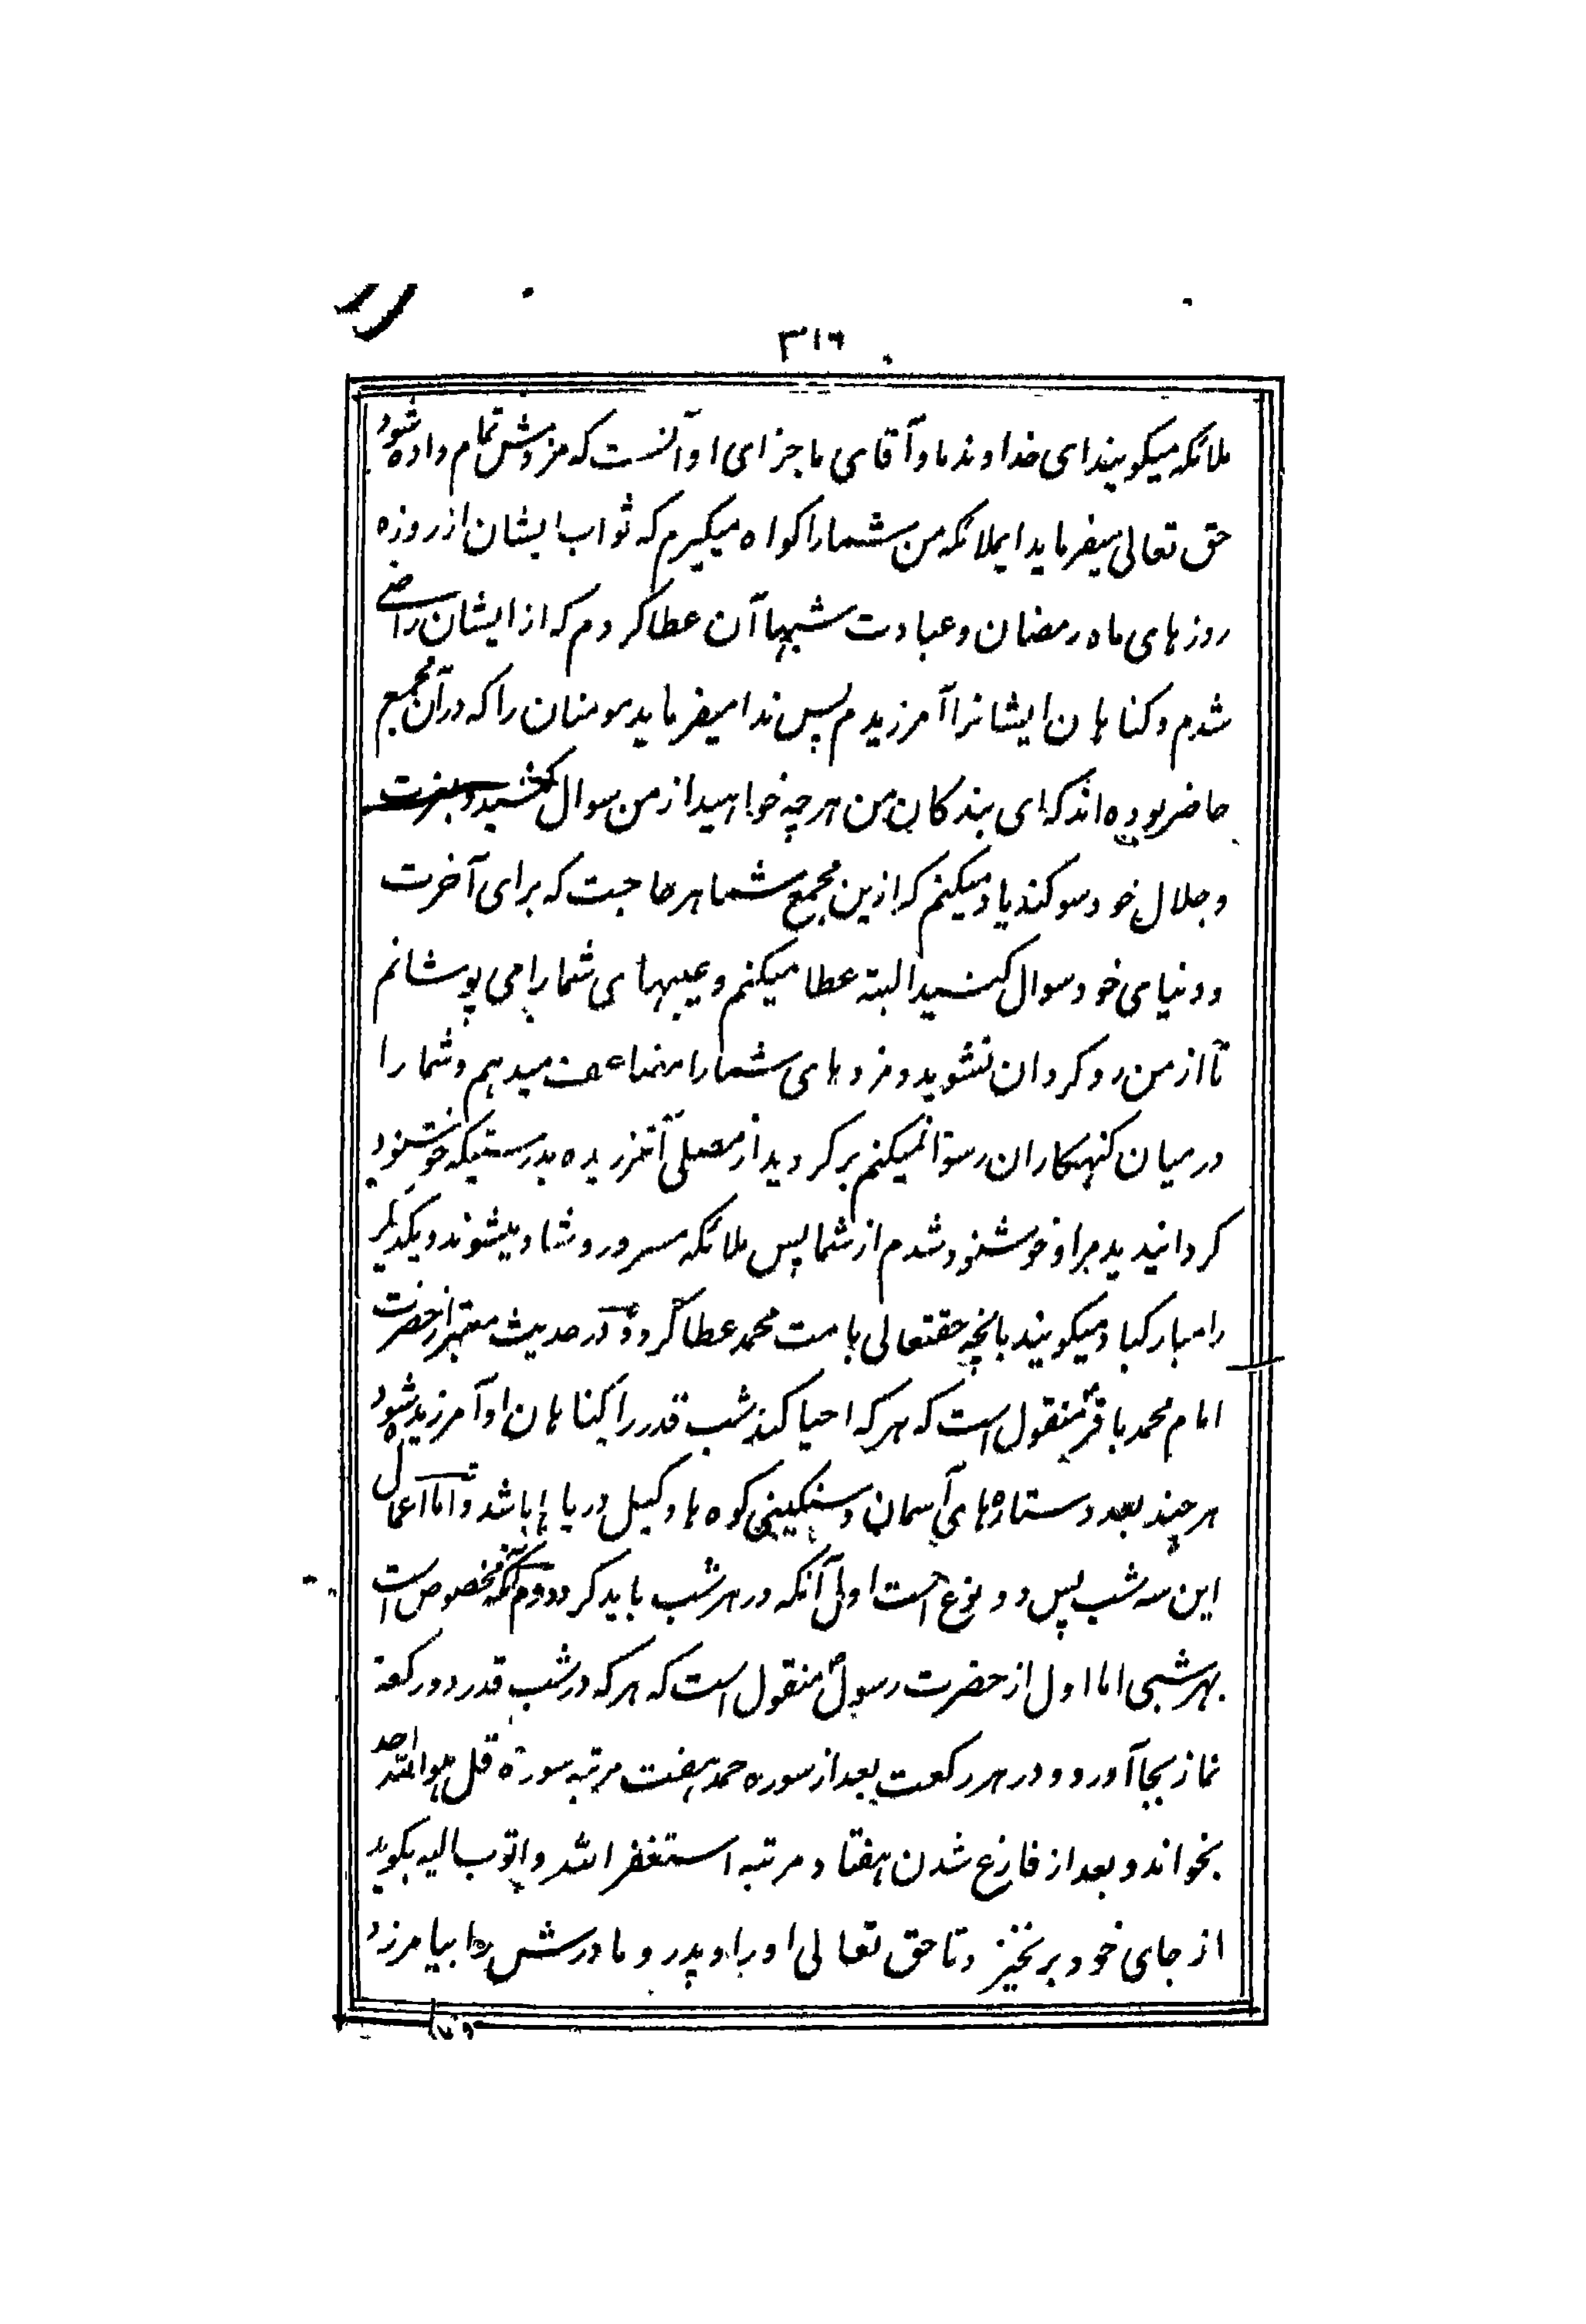 ٣١٦
ملائکه میکویند ای خداوند ما و آقای ما جزای او آنست که مزدش تمام داده شود
حق تعالی میفرماید ایملائکه من شما را کواه میکیرم که ثواب ایشان از روزه
روزهای ماه رمضان و عبادت شبها آن عطا کردم که از ایشان راضی
شدم و کناهان ایشانرا آمرزیدم پس ندا میفرماید مومنان را که در آن مجمع
حاضر بوده اند که ای بندکان من هر چه خواهید از من سوال کنید و بعزت
و جلال خود سوکند یاد میکنم که ازین مجمع شما هر حاجت که برای آخرت
و دنیای خود سوال کنید البته عطا میکنم و عیبهای شما را می پوشانم
تا از من رو کردان نشوید و مزدهای شما را مضاعف میدهم و شما را
در میان کنهکاران رسوا نمیکنم بر کردید از مصلی آمرزیده بدرستیکه خوشنود
کردانیدید مرا و خوشنود شدم از شما پس ملائکه مسرور و شاد میشوند و یکدیکر
را مبارکباد میکویند بانچه حقتعالی بامت محمد عطا کرده و در حدیث معتبر از حضرت
امام محمد باقر منقول است که هر که احیا کند شب قدر را کناهان او آمرزیده شود
هر چند بعدد ستاره های آسمان و سنکینی کوه ها و کیل دریاها باشد و اما اعمال
این سه شب پس دو نوع است اول آنکه در هر شب باید کرد دوم آنکه مخصوص است
بهر شبی اما اول از حضرت رسول منقول است که هر که در شب قدر دو رکعة
نماز بجا آورد و در هر رکعت بعد از سوره حمد هفت مرتبه سورة قل هو الله احد
بخواند و بعد از فارغ شدن هفتاد مرتبه استغفر الله و اتوب الیه بکوید
از جای خود بر نخیزد تا حق تعالی او را و پدر و مادرش را بیامرزد